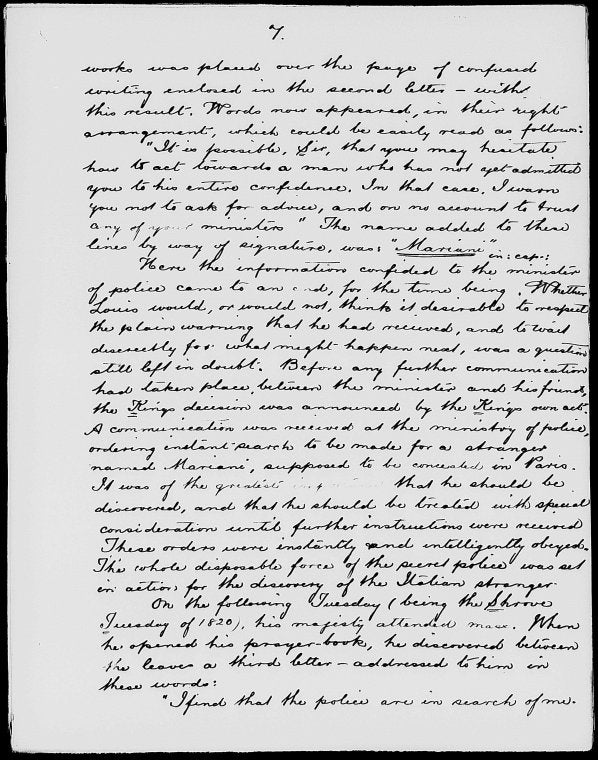 7.
works was placed over the page of confused
writing enclosed in the second letter – with
this result. Words now appeared, in their right
arrangement, which could be easily read as follows:
"It is possible, Sir, that you may hesitate
how to act towards a man who has not yet admitted
you to his entire confidence. In that case, I warn
you not to ask for advice, and on no account to trust
any of your ministers" The name added to these
lines by way of signature, was: "Mariani" in: cap:
Here the information confided to the minister
of police came to an end, for the time being. Whether
Louis would, or would not, think it desirable to respect
the plain warning that he had received, and to wait
discreetly for what might happen next, was a question
still left in doubt. Before any further communication
had taken place between the minister and his friend,
the Kings decision was announced by the Kings own act.
A communication was received at the ministry of police,
ordering instant search to be made for a stranger
named Mariani, supposed to be concealed in Paris.
It was of the greatest that he should be
discovered, and that he should be treated with special
consideration until further instructions were received
These orders were instantly and intelligently obeyed.
The whole disposable force of the secret police was set
in action for the discovery of the Italian stranger
On the following Tuesday (being the Shrove
Tuesday of 1820), his majesty attended mass. When
he opened his prayer-book, he discovered between
the leaves a third letter – addressed to him in
these words:
"I find that the police are in search of me.